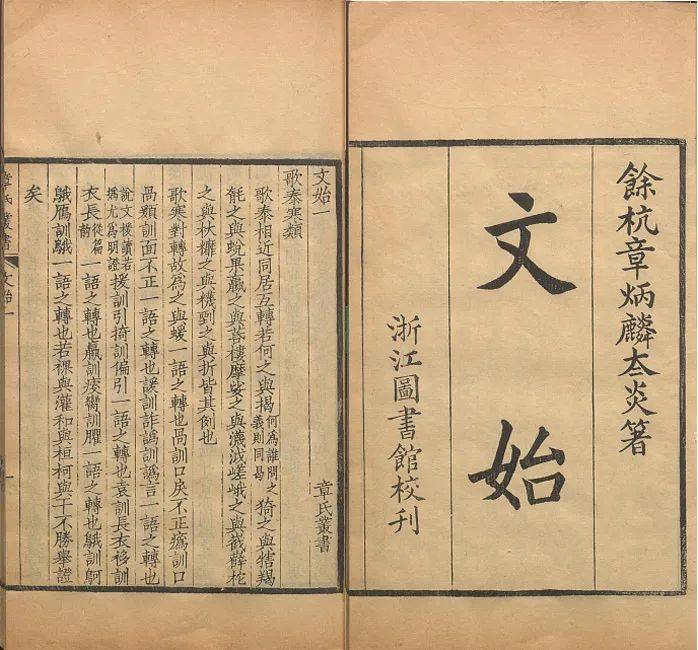 餘杭章炳麟夳炎箸
文始
浙江圖書館校刊
文始一 章氏叢書
歌泰寒類
歌泰相近同居互轉若何之與揭何爲誰問之義則同曷猗之與犗羯
毻之與蛻果蠃之與苦蔞摩娑之與泧嵯峨之與巀薛柁
之與杕之與機剄之與折皆其例也
歌寒對轉故爲之與蝯一語之轉也咼訓口戾不正瘑訓口
咼類訓面不正一語之轉也諼訓詐譌訓譌言一語之轉也
說文援讀若撝尤爲明證援訓引掎訓偏引一語之轉也袁訓長衣移訓
衣長從前篇一語之轉也羸訓痠臠訓臞一語之轉也䳘訓䳗
䳘鴈訓䳘一語之轉也若裸與灌和與桓柯與干不勝舉證
矣
章氏叢書 文始一 一